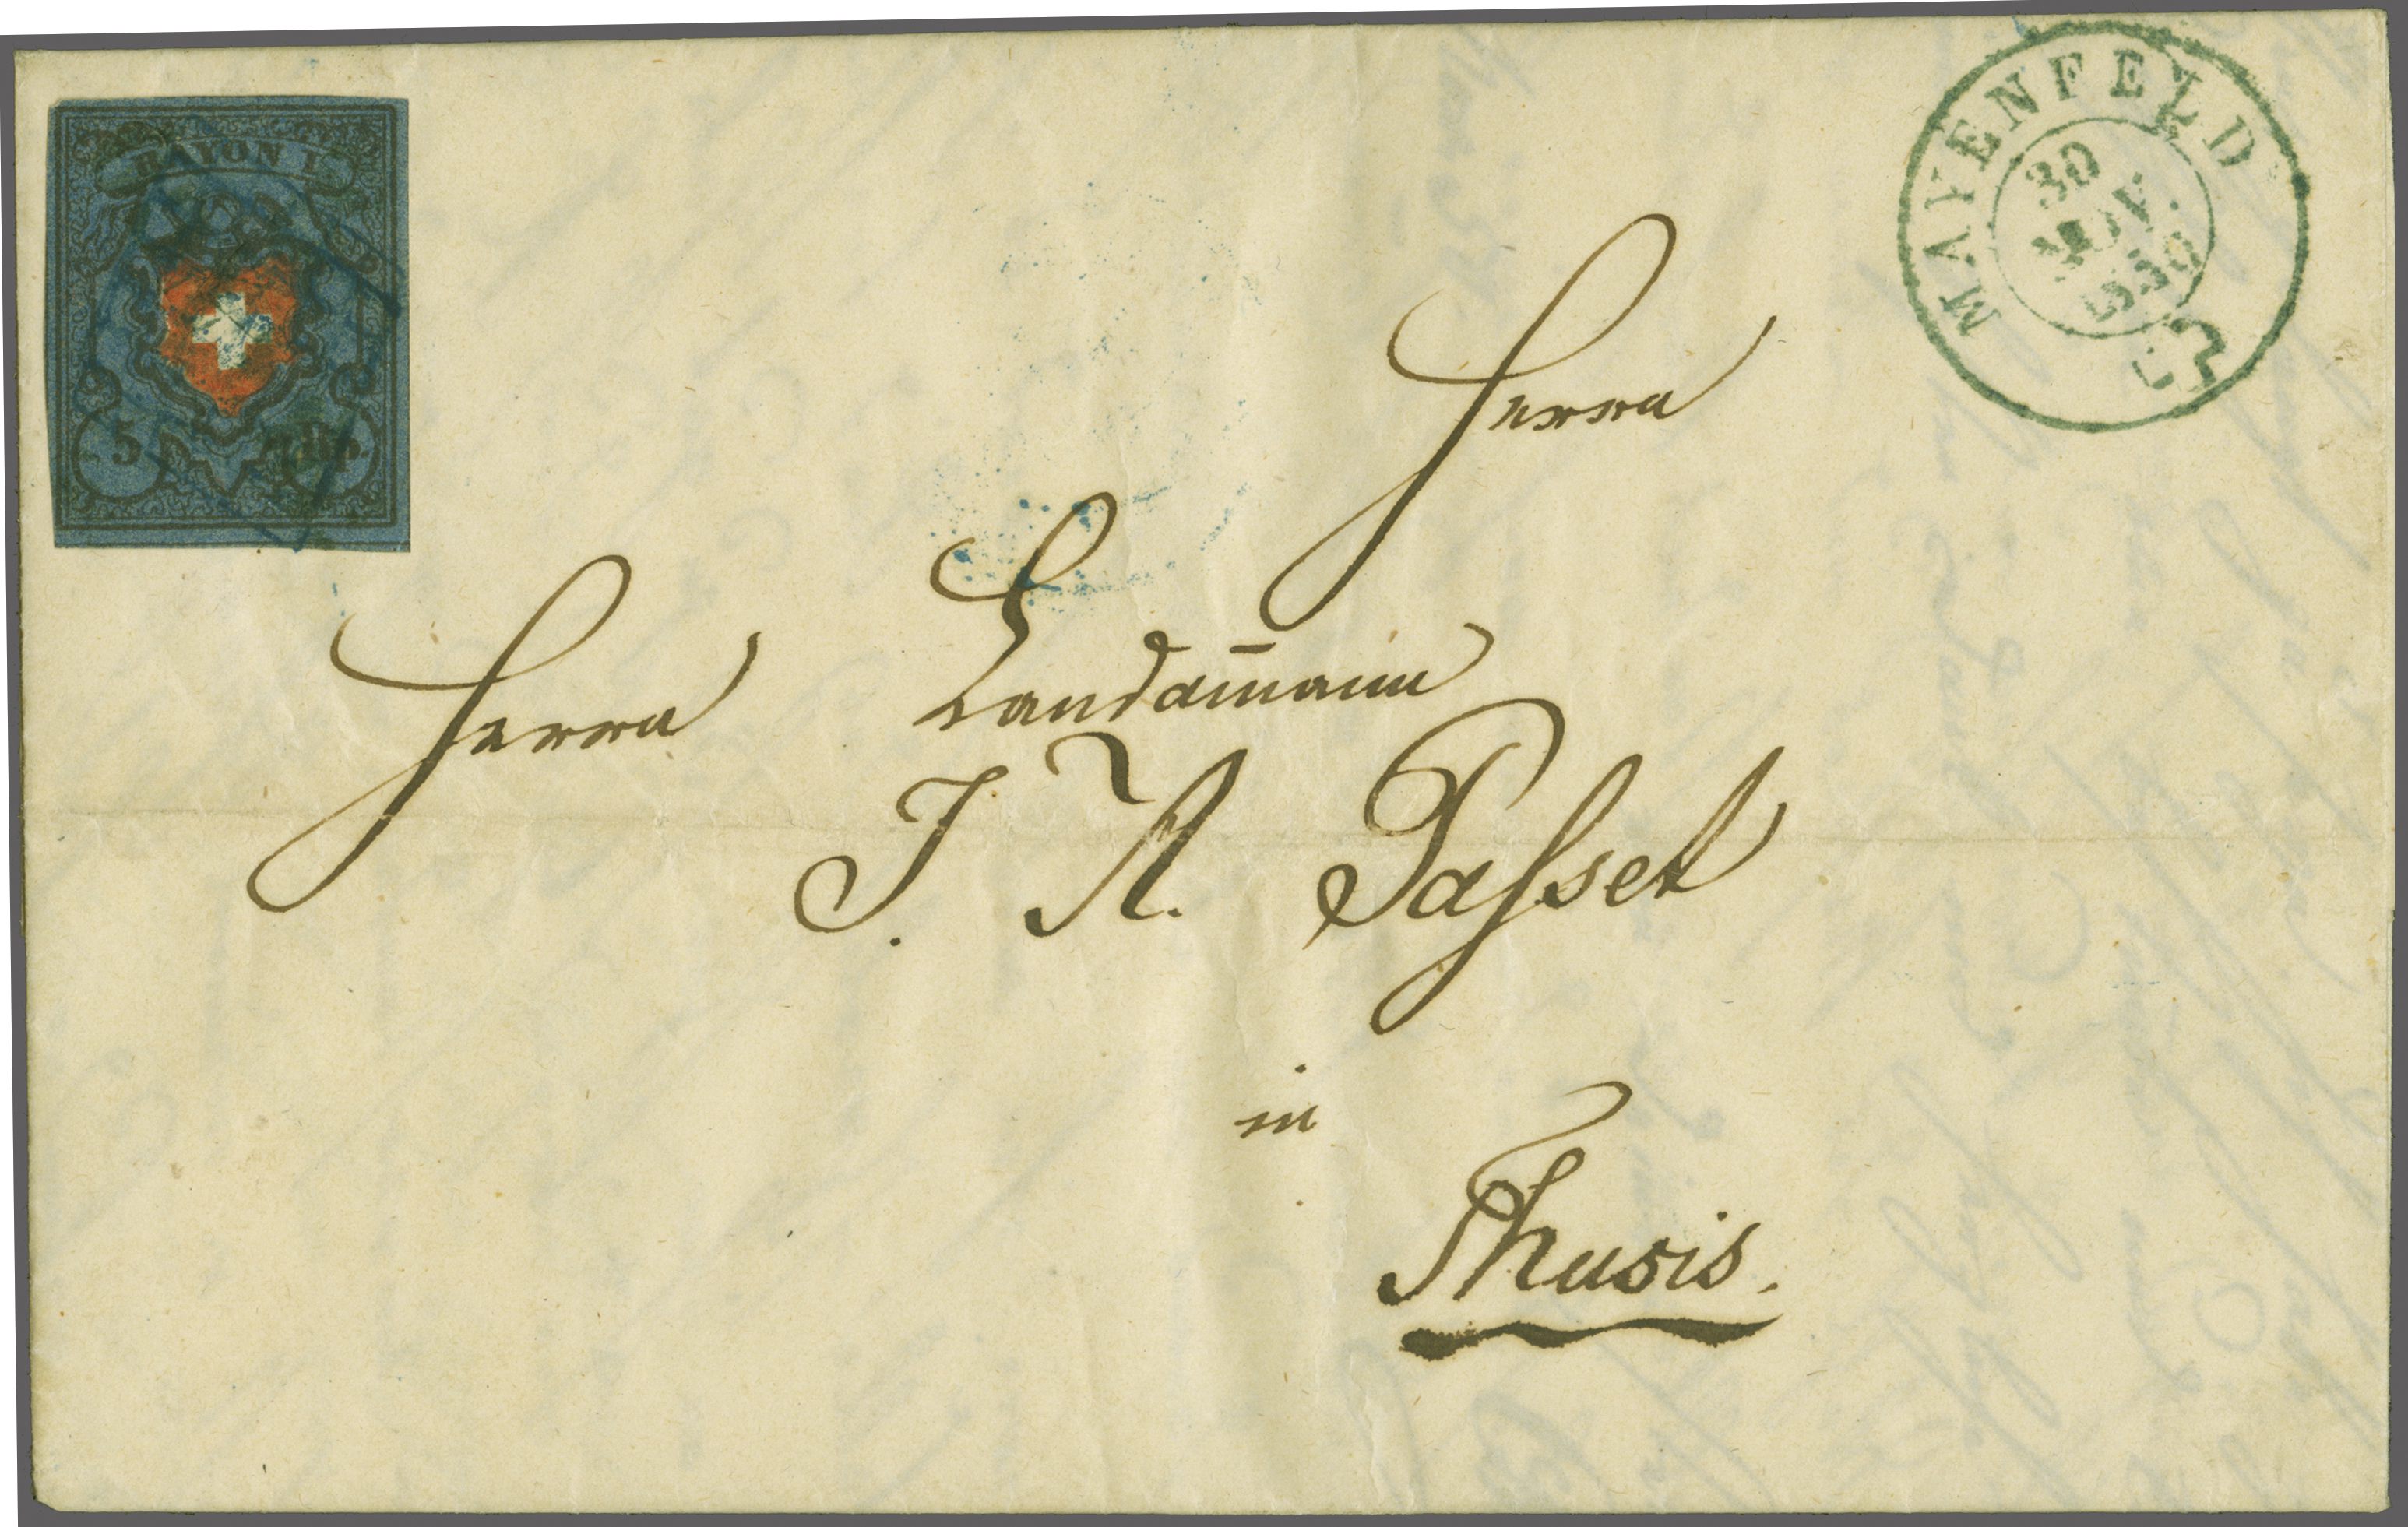 RAYON I.
5 Rp.
MAYENFELD
30
NOV.
1850
Herrn
Herrn Landam̄ann
J. A. Passet
in
Thusis.